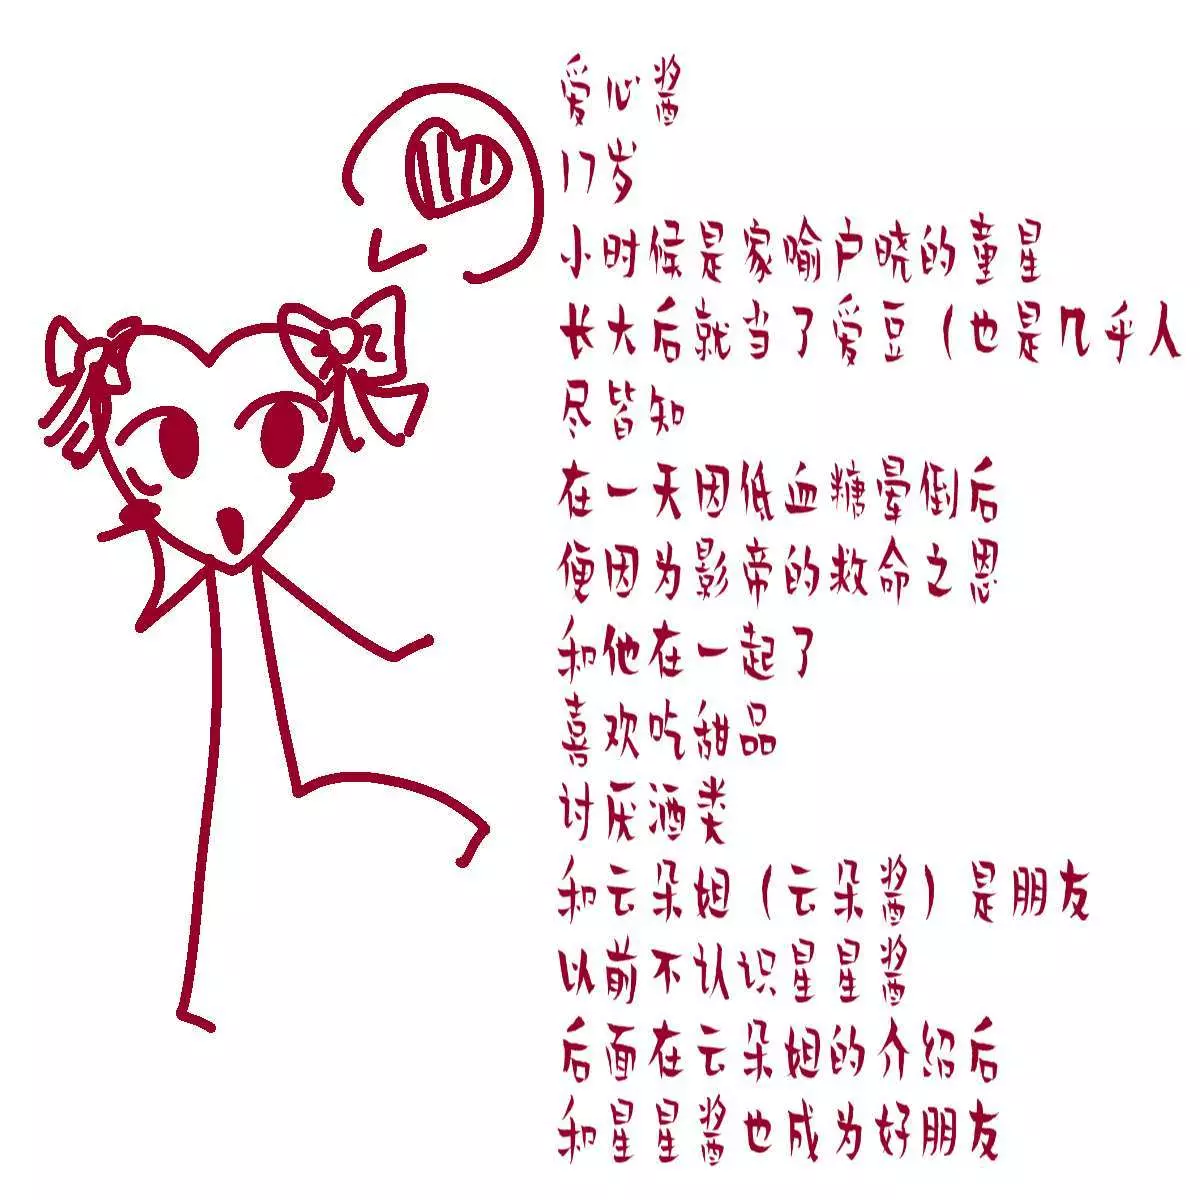 爱心酱
17岁
小时候是家喻户晓的童星
长大后就当了爱豆（也是几乎人
尽皆知
在一天因低血糖晕倒后
便因为影帝的救命之恩
和他在一起了
喜欢吃甜品
讨厌酒类
和云朵姐（云朵酱）是朋友
以前不认识星星酱
后面在云朵姐的介绍后
和星星酱也成为好朋友